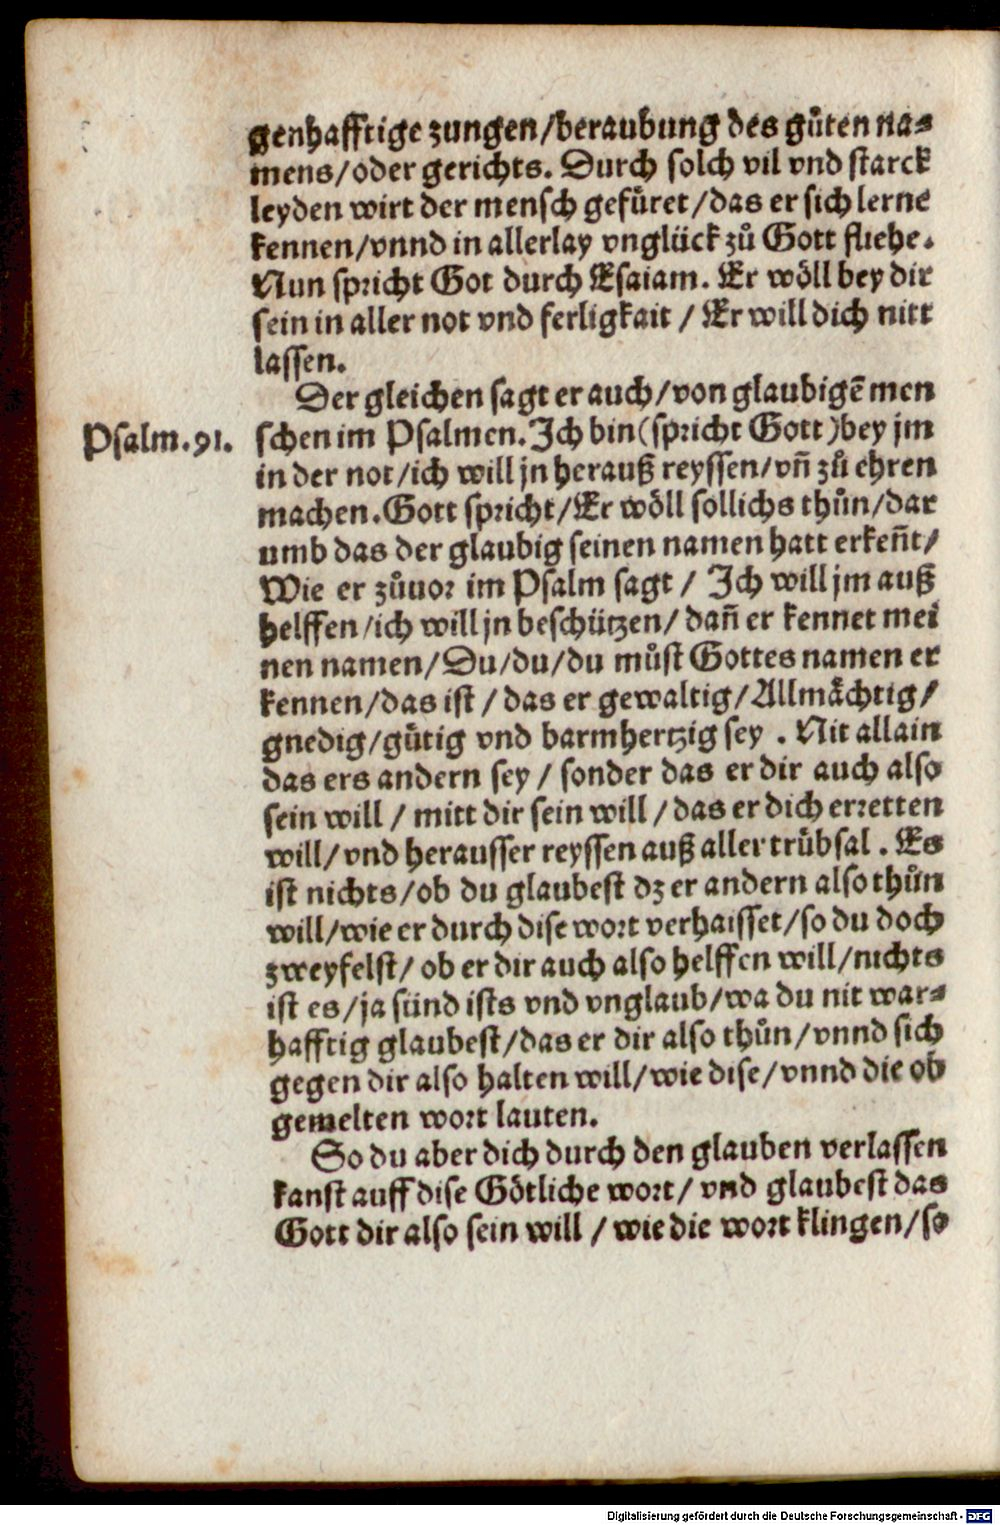 genhafftige zungen/beraubung des gůten na⸗
mens/oder gerichts. Durch solch vil vnd starck
leyden wirt der mensch gefüret/das er sich lerne
kennen/vnnd in allerlay vnglück zů Gott fliehe.
Nun spricht Got durch Esaiam. Er wöll bey dir
sein in aller not vnd ferligkait / Er will dich nitt
lassen.
Der gleichen sagt er auch/von glaubigē men
Psalm.91. schen im Psalmen. Ich bin(spricht Gott)bey jm
in der not/ich will jn herauß reyssen/vñ zů ehren
machen. Gott spricht/Er wöll sollichs thůn/dar
umb das der glaubig seinen namen hatt erkeñt/
Wie er zůuor im Psalm sagt / Ich will jm auß
helffen/ich will jn beschützen/ dañ er kennet mei
nen namen/Du/du/du můst Gottes namen er
kennen/das ist / das er gewaltig/Allmächtig/
gnedig/gütig vnd barmhertzig sey . Nit allain
das ers andern sey / sonder das er dir auch also
sein will / mitt dir sein will / das er dich erretten
will/ vnd herausser reyssen auß aller trübsal . Es
ist nichts/ob du glaubest dz er andern also thůn
will/wie er durch dise wort verhaisset/so du doch
zweyfelst/ ob er dir auch also helffen will/nichts
ist es/ja sünd ists vnd vnglaub/wa du nit war⸗
hafftig glaubest/das er dir also thůn/vnnd sich
gegen dir also halten will/wie dise/vnnd die ob
gemelten wort lauten.
So du aber dich durch den glauben verlassen
kanst auff dise Götliche wort/ vnd glaubest das
Gott dir also sein will / wie die wort klingen/so
Digitalisierung gefördert durch die Deutsche Forschungsgemeinschaft - DFG